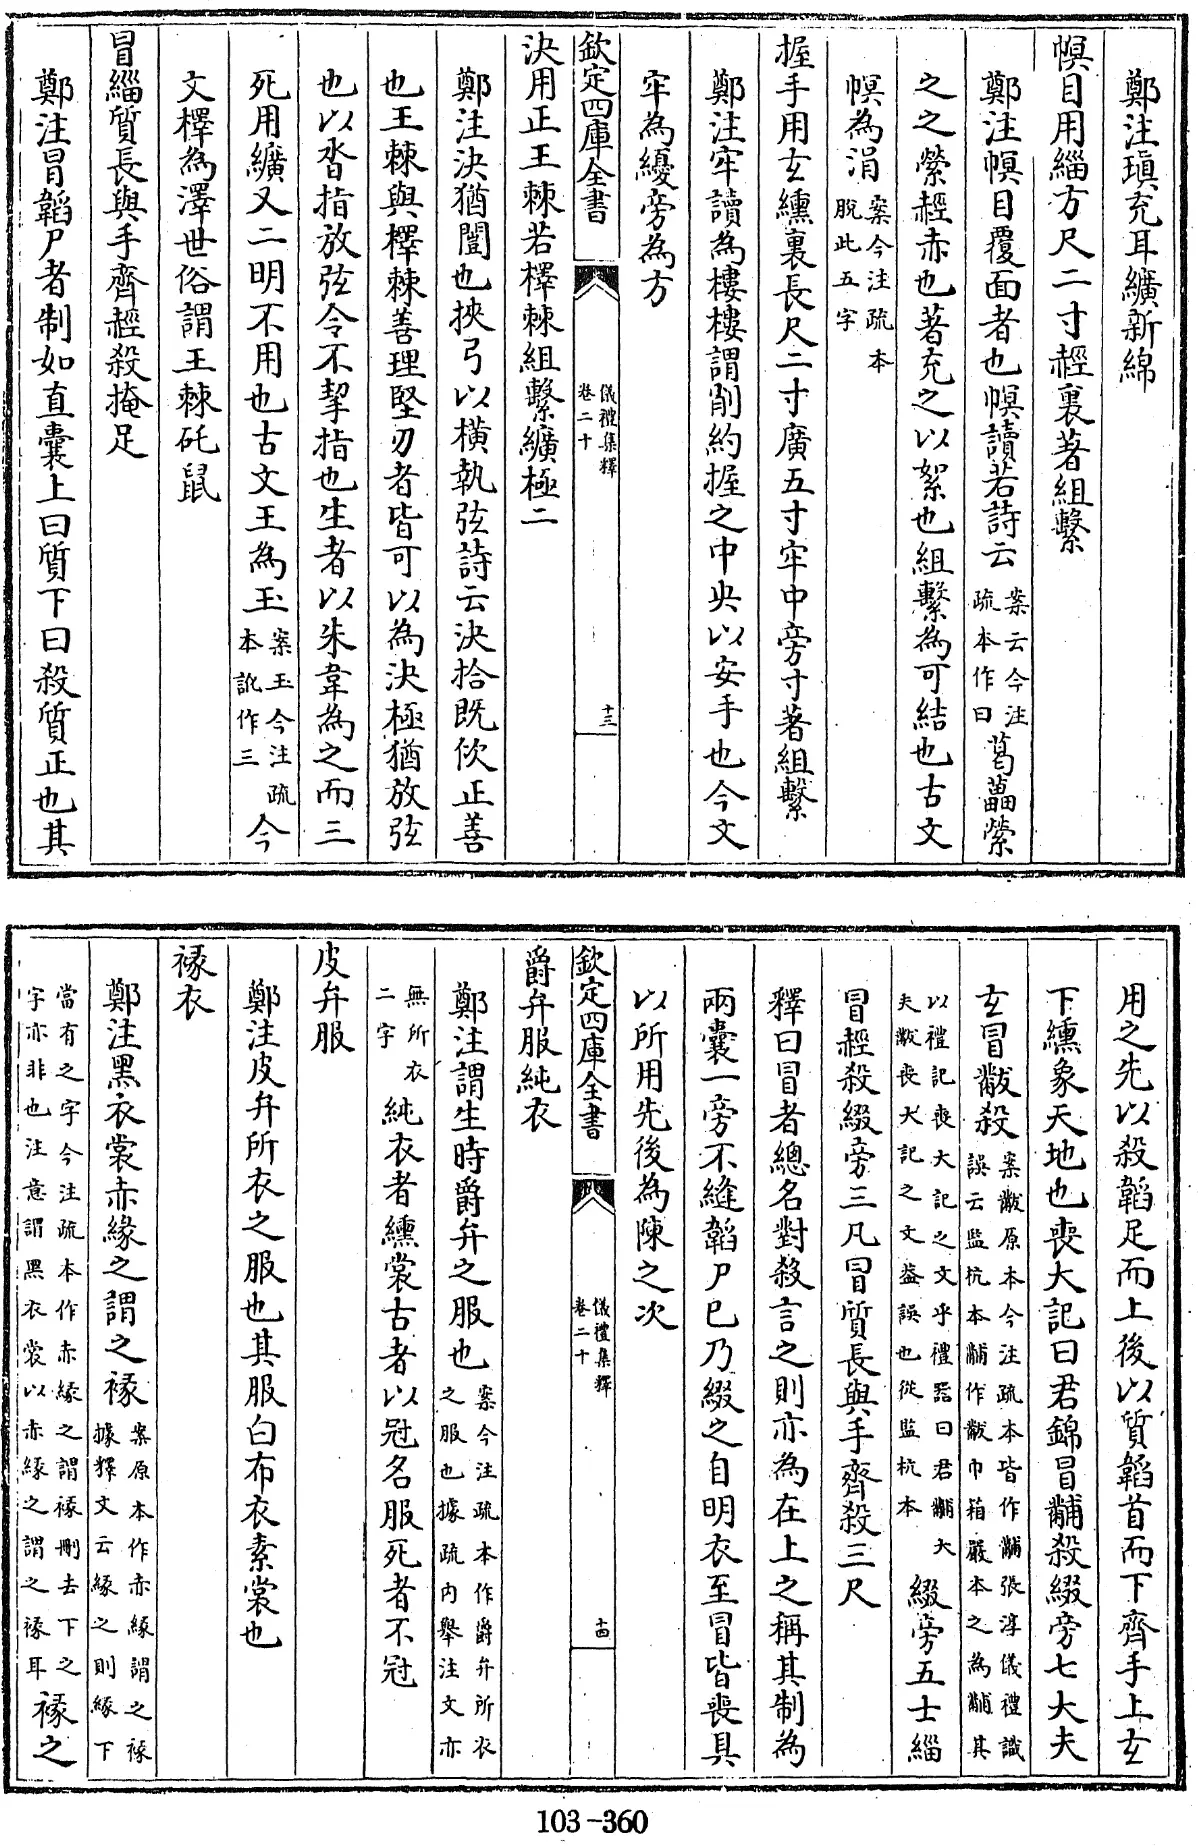 鄭注瑱充耳纊新綿
幎目用緇方尺二寸䞓裏著組繫
鄭注幎目覆面者也幎讀若詩云案云今注疏本作曰葛藟縈
之之縈䞓赤也著充之以絮也組繫為可結也古文
幎為涓案今注疏本脫此五字
握手用玄纁裏長尺二寸廣五寸牢中旁寸著組繫
鄭注牢讀為樓樓謂削約握之中央以安手也今文
牢為纋旁為方
欽定四庫全書
儀禮集釋
卷二十
十三
決用正王棘若檡棘組繫纊極二
鄭注決猶闓也挾弓以橫執弦詩云決拾既佽正善
也王棘與檡棘善理堅刃者皆可以為決極猶放弦
也以沓指放弦令不挈指也生者以朱韋為之而三
死用纊又二明不用也古文王為玉案玉今注疏本訛作三今
文檡為澤世俗謂王棘矺鼠
冒緇質長與手齊䞓殺掩足
鄭注冒韜尸者制如直囊上曰質下曰殺質正也其
用之先以殺韜足而上後以質韜首而下齊手上玄
下纁象天地也喪大記曰君錦冒黼殺綴旁七大夫
玄冒黻殺案黻原本今注疏本皆作黼張淳儀禮識誤云監杭本黼作黻巾箱嚴本之為黼其
以禮記喪大記之文乎禮器曰君黼大夫黻喪大記之文葢誤也從監杭本綴旁五士緇
冒䞓殺綴旁三凡冒質長與手齊殺三尺
釋曰冒者總名對殺言之則亦為在上之稱其制為
兩囊一旁不縫韜尸已乃綴之自明衣至冒皆喪具
以所用先後為陳之次
欽定四庫全書
儀禮集釋
卷二十
十四
爵弁服純衣
鄭注謂生時爵弁之服也案今注疏本作爵弁所衣之服也據疏內舉注文亦
無所衣二字純衣者纁裳古者以冠名服死者不冠
皮弁服
鄭注皮弁所衣之服也其服白布衣素裳也
褖衣
鄭注黑衣裳赤緣之謂之褖案原本作赤緣謂之褖據釋文云緣之則緣下
當有之字今注疏本作赤緣之謂褖刪去下之字亦非也注意謂黑衣裳以赤緣之謂之褖耳褖之
103-360